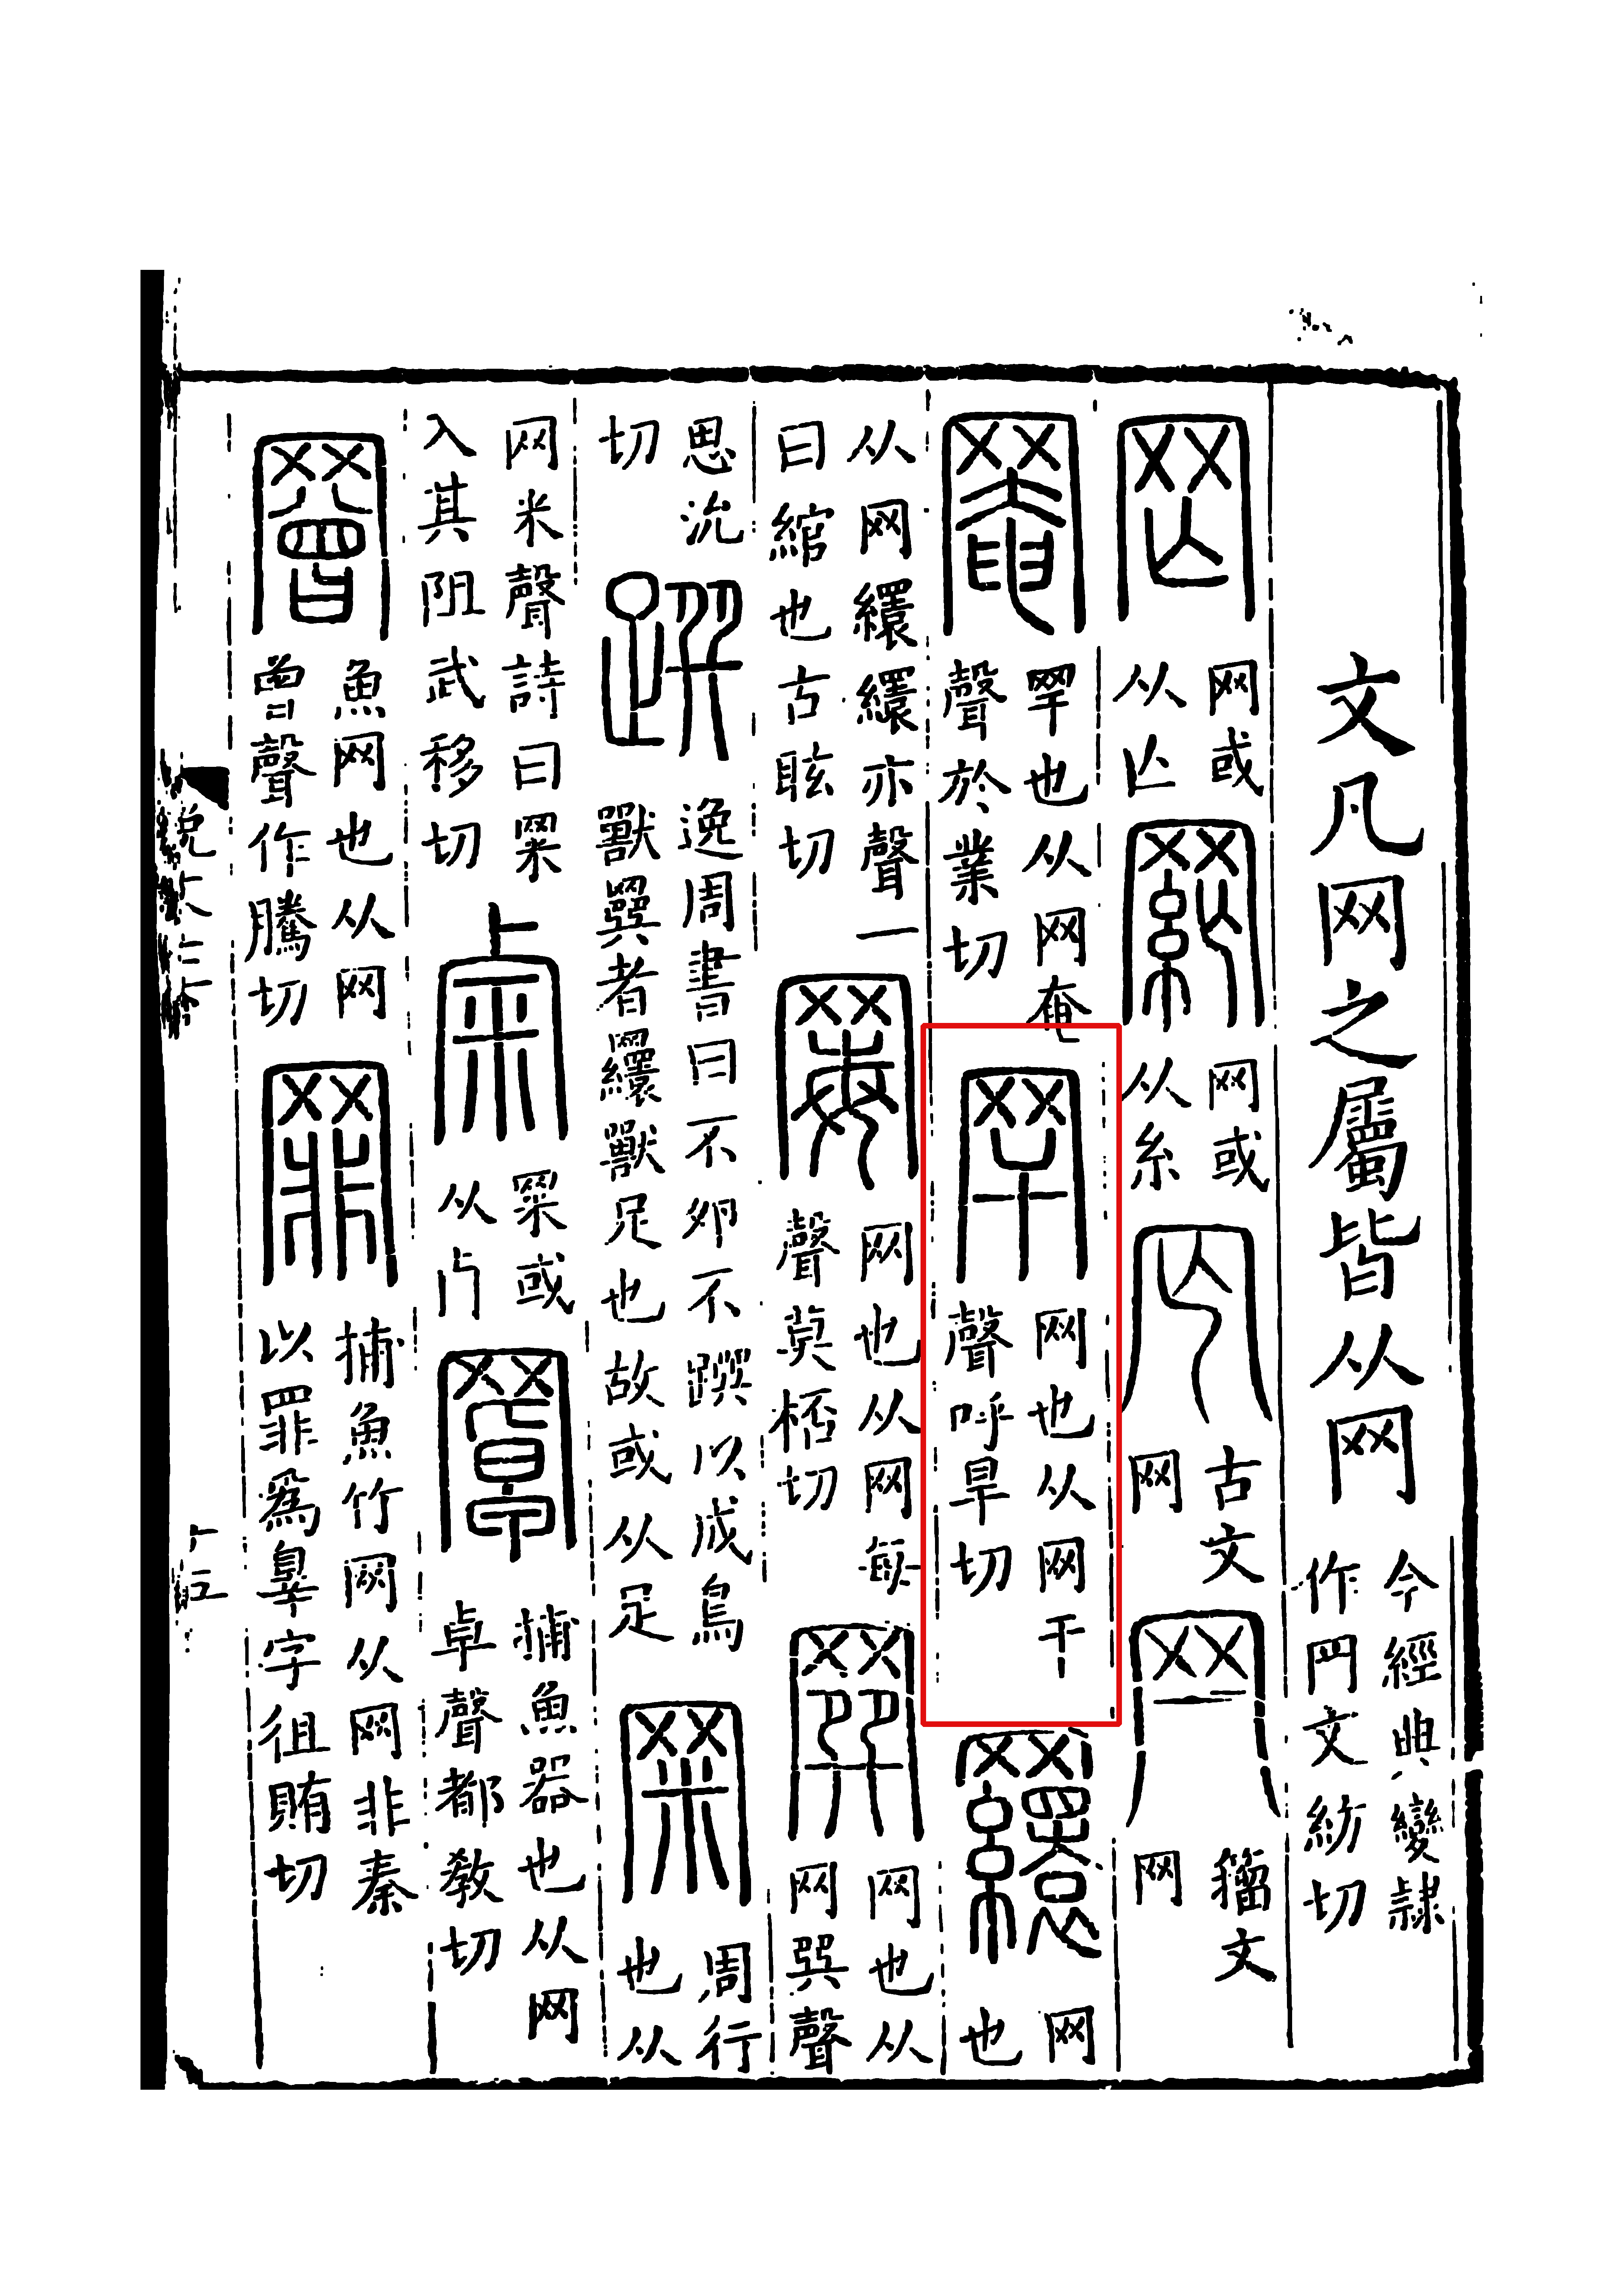 文凡网之屬皆从网今經典變隸作罒文紡切
罔网或从亡網网或从糸𠔿古文网𦉫籀文网
罨罕也从网奄聲於業切罕网也从网干聲呼旱切𦌾网也
从网繯繯亦聲一曰綰也古眩切𦋡网也从网每聲莫桮切𦌔网也从网巽聲
思沇切𨅒逸周書曰不卵不蹼以成鳥獸𦌔者𦌾獸足也故或从足𥹆周行也从
网米聲詩曰𥹆入其阻武移切𥹆或从𣦵罩捕魚器也从网卓聲都教切
罾魚网也从网曾聲作騰切罪捕魚竹网从网非秦以罪爲辠字徂賄切